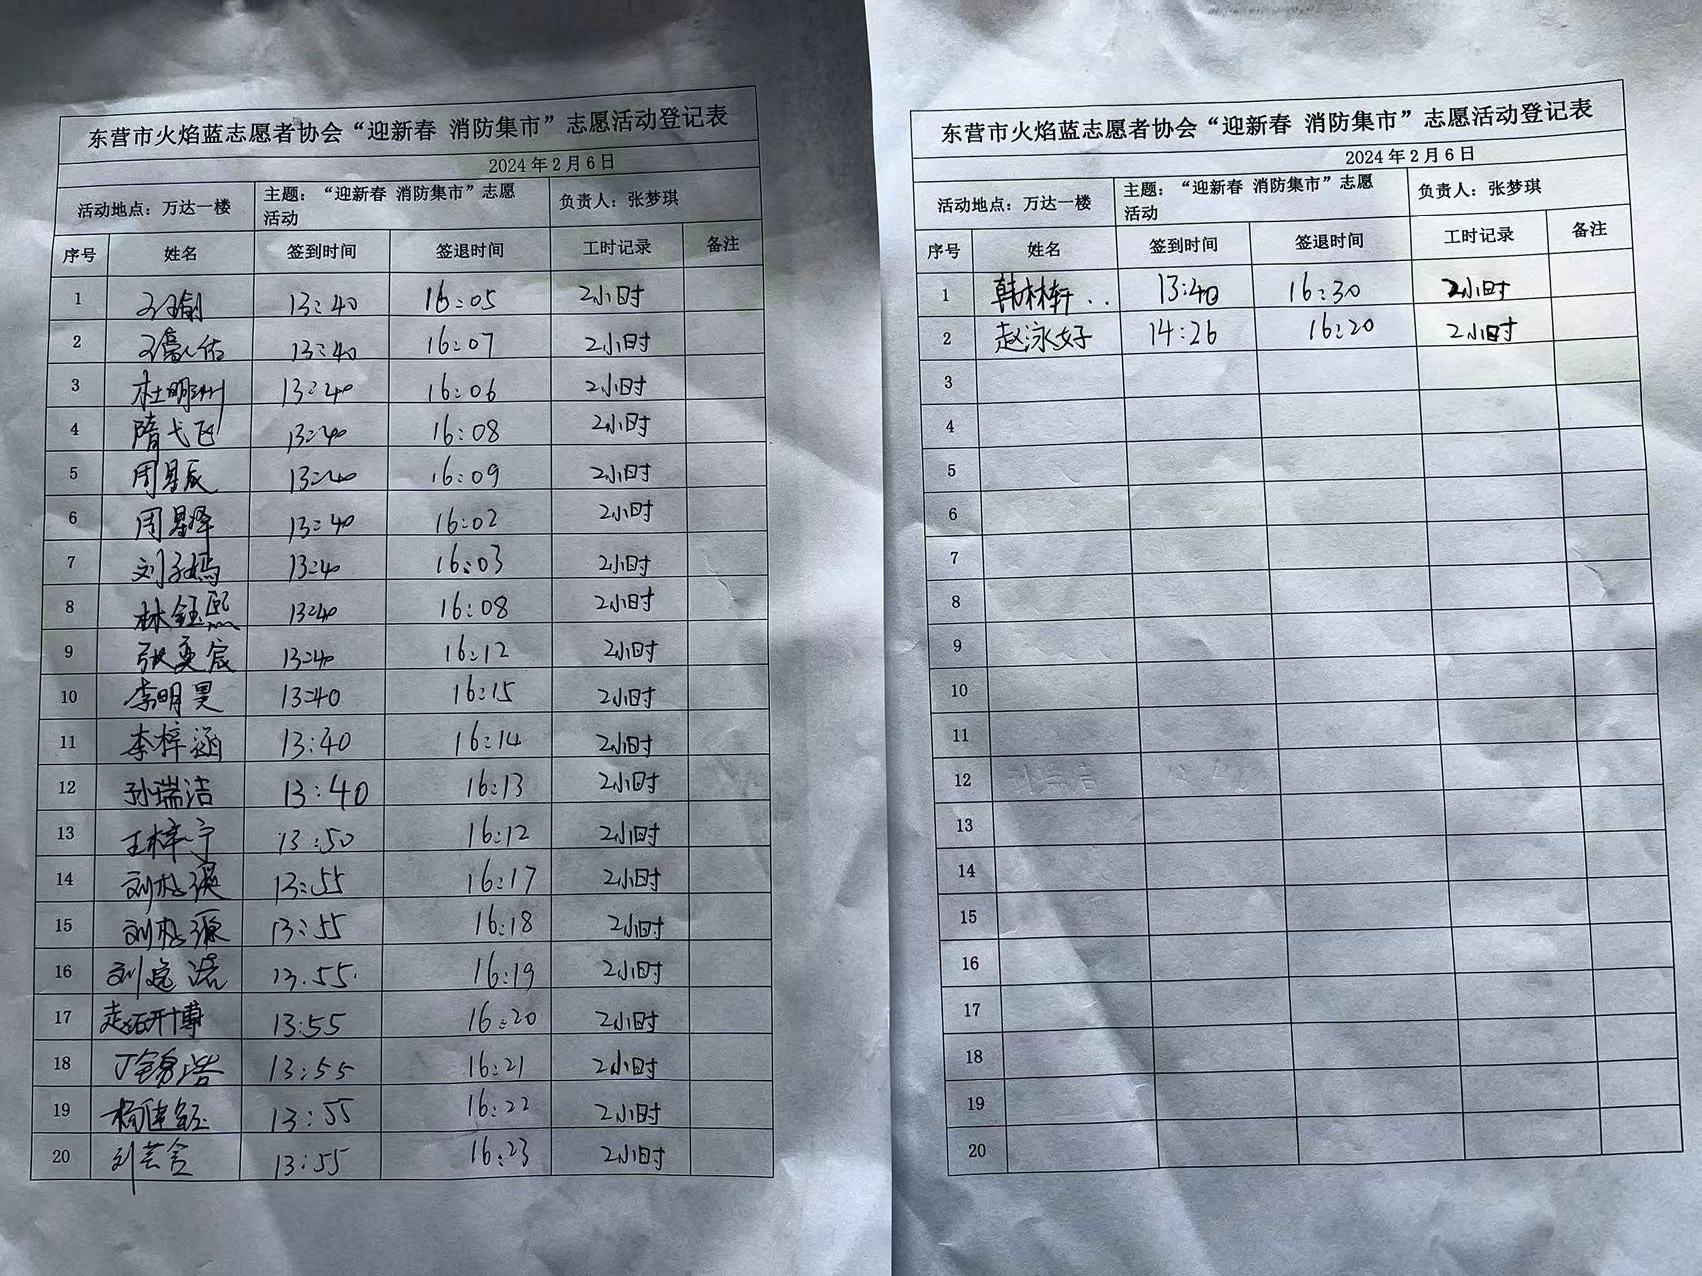 东营市火焰蓝志愿者协会“迎新春 消防集市”志愿活动登记表
2024年2月6日
活动地点：万达一楼 主题：“迎新春 消防集市”志愿活动 负责人：张梦琪
序号 姓名 签到时间 签退时间 工时记录 备注
1 13:40 16:05 2小时
2 13:40 16:07 2小时
3 杜明洲 13:40 16:06 2小时
4 隋弋飞 13:40 16:08 2小时
5 周星辰 13:40 16:09 2小时
6 周星泽 13:40 16:02 2小时
7 刘子嫣 13:40 16:03 2小时
8 林钰熙 13:40 16:08 2小时
9 张奕宸 13:40 16:12 2小时
10 李明昊 13:40 16:15 2小时
11 李梓涵 13:40 16:14 2小时
12 孙瑞洁 13:40 16:13 2小时
13 王梓宁 13:50 16:12 2小时
14 13:55 16:17 2小时
15 13:55 16:18 2小时
16 13.55 16:19 2小时
17 赵研博 13:55 16:20 2小时
18 13:55 16:21 2小时
19 13:55 16:22 2小时
20 13:55 16:23 2小时
东营市火焰蓝志愿者协会“迎新春 消防集市”志愿活动登记表
2024年2月6日
活动地点：万达一楼 主题：“迎新春 消防集市”志愿活动 负责人：张梦琪
序号 姓名 签到时间 签退时间 工时记录 备注
1 韩林轩 13:40 16:30 2小时
2 赵泳好 14:26 16:20 2小时
3
4
5
6
7
8
9
10
11
12
13
14
15
16
17
18
19
20